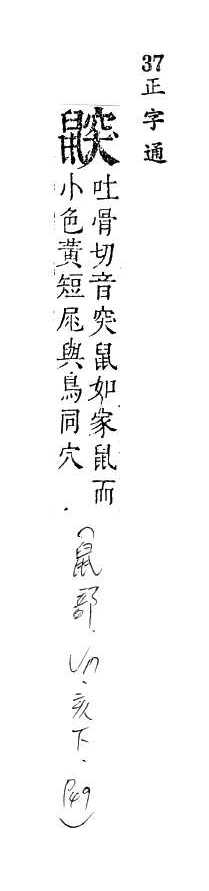 37正字通
鼵吐骨切音突鼠如家鼠而
小色黃短尾與鳥同穴
(鼠部.亥下.P49)